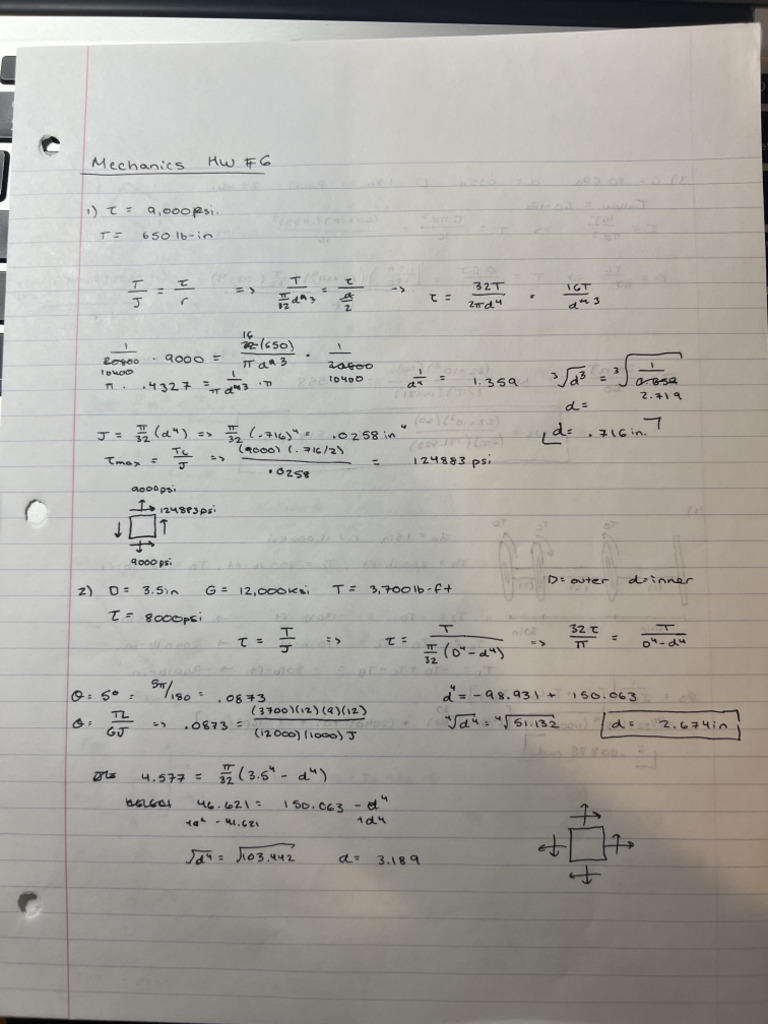 Mechanics HW #6
1) τ = 9,000psi.
T = 650 lb-in
T/J = τ/r => T/(π/32 d^3) = τ/(d/2) => τ = 32T/2πd⁴ = 16T/d^3
1/10400 · 9000 = 16(650)/πd^3 · 1/10400
π · .4327 = 1/πd^3 · π
1/d^ = 1.359 ³√d³ = ³√(1/2.719)
d=
d= .716 in.
J = π/32 (d⁴) => π/32 (.716)⁴ = .0258 in⁴
τmax = Tc/J => (9000)(.716/2)/.0258 = 124883 psi
9000psi
124883psi
9000psi
2) D = 3.5in G = 12,000ksi T = 3,700lb-ft D=outer d=inner
τ = 8000psi
τ = T/J => τ = T/(π/32 (D⁴-d⁴)) => 32τ/π = T/(D⁴-d⁴)
θ = 5° = 5π/180 = .0873
θ = TL/GJ => .0873 = (3700)(12)(9)(12)/(12000)(1000)J
d⁴ = -98.931 + 150.063
⁴√d⁴ = ⁴√51.132 d = 2.674in
4.577 = π/32 (3.5⁴ - d⁴)
46.621 = 150.063 - d⁴
+d⁴ -46.621 +d⁴
√d⁴ = √103.442 d = 3.189